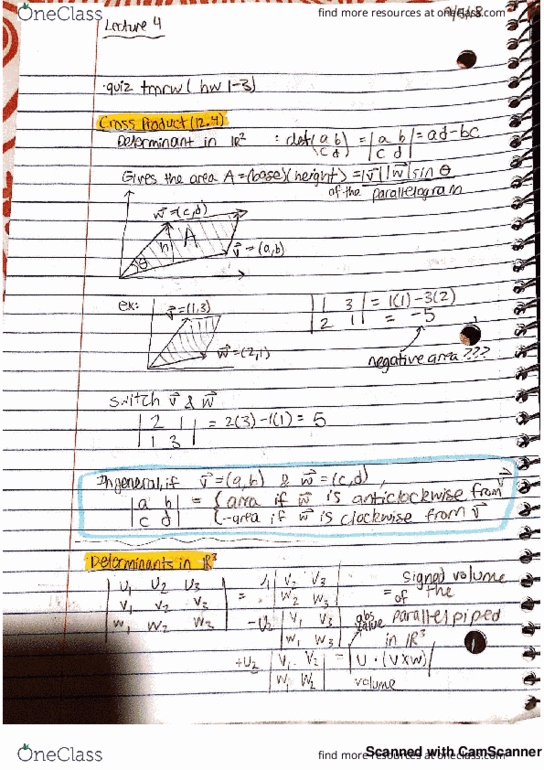 OneClass
find more resources at oneclass.com
Lecture 4
·quiz tmrw ( hw 1-3)
Cross Product (12.4)
Determinant in R² : det(a b / c d) = |a b / c d| = ad-bc
Gives the area A = (base)(height) = |v⃗||w⃗| sin θ
of the parallelogram
w⃗ = (c,d)
A
h
θ
v⃗ = (a,b)
ex:
v⃗ = (1,3)
w⃗ = (2,1)
|1 3| = 1(1) - 3(2)
|2 1| = -5
negative area ???
switch v⃗ & w⃗
|2 1| = 2(3) - 1(1) = 5
|1 3|
In general, if v⃗ = (a,b) & w⃗ = (c,d),
|a b| = { area if w⃗ is anticlockwise from v⃗
|c d| {-area if w⃗ is clockwise from v⃗
Determinants in R³
|U₁ U₂ U₃|
|V₁ V₂ V₃|
|W₁ W₂ W₃|
= |V₂ V₃|
|W₂ W₃|
-U₂ |V₁ V₃|
|W₁ W₃|
+U₂ |V₁ V₂|
|W₁ W₂|
= signed volume
of the
parallelpiped
in R³
abs value
= |U · (V×W)|
volume
OneClass
find more resources at oneclass.com
Scanned with CamScanner